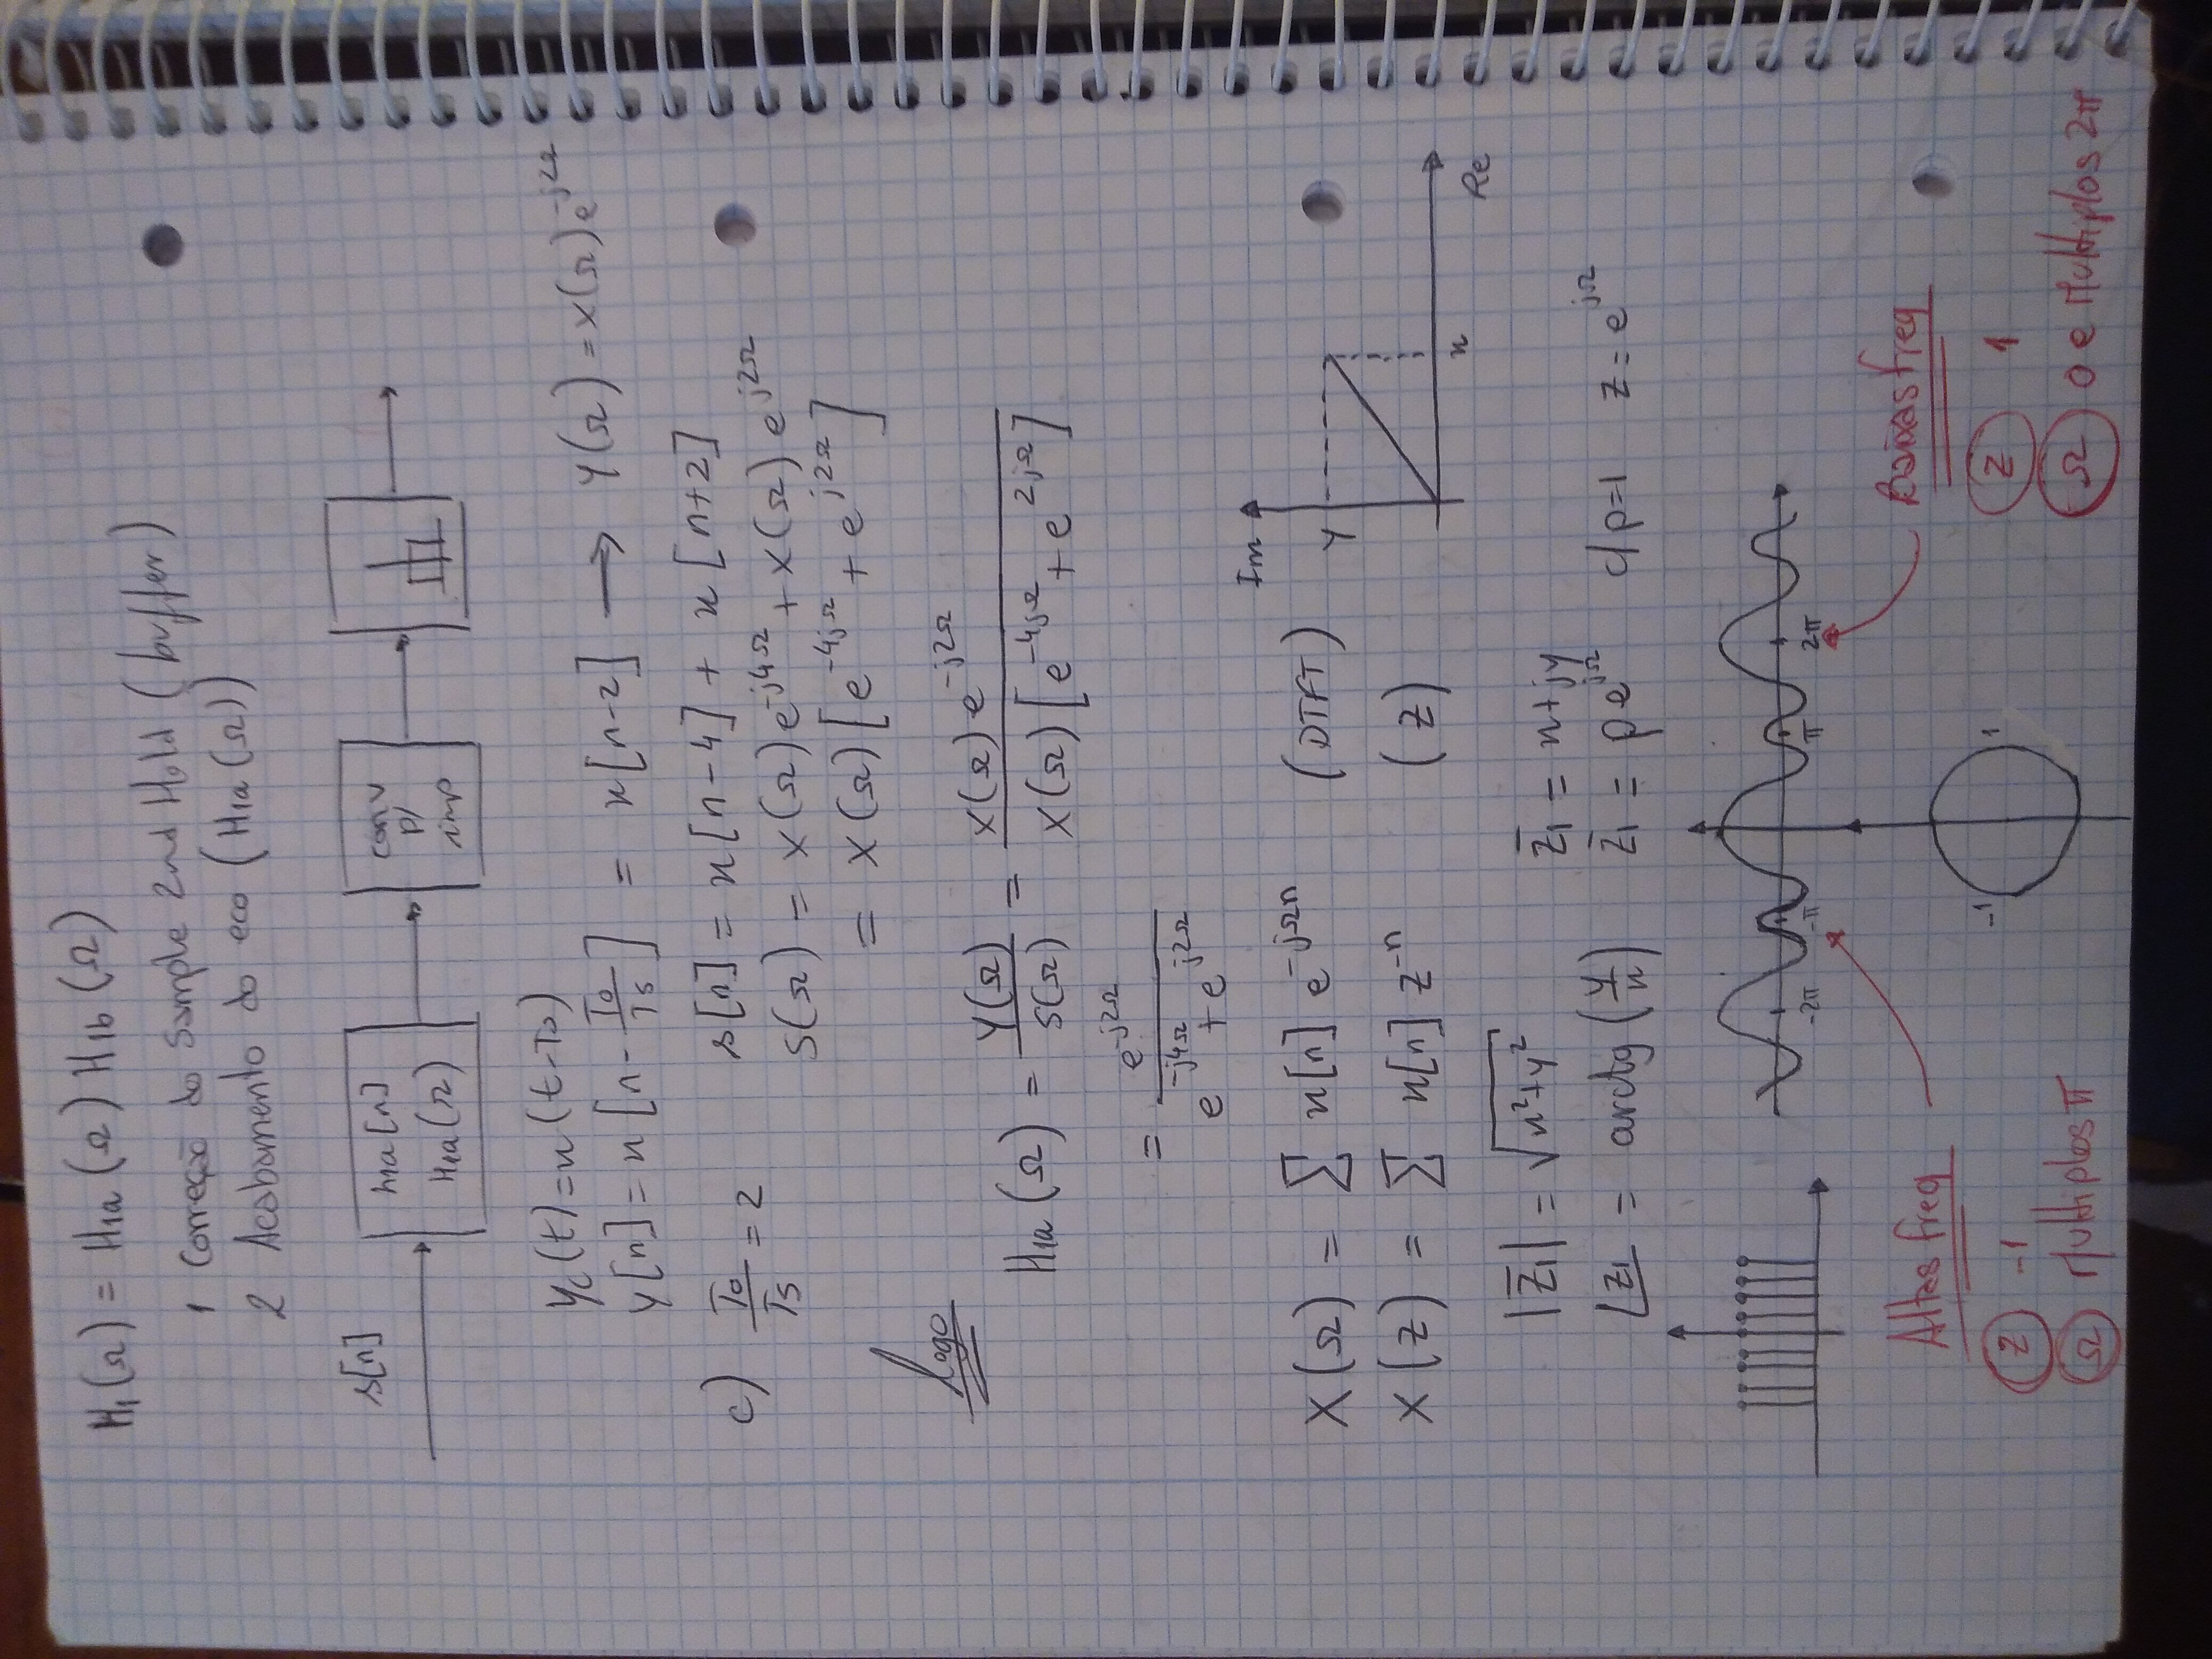 H₁(Ω) = H1a(Ω) H1b(Ω)
1 Correção do Sample 2nd Hold (buffer)
2 Acabamento do eco (H1a(Ω))
s[n]
h1a[n]
H1a(Ω)
conv
p/
imp
yc(t)=x(t-To)
y[n]=x[n-To/Ts] = x[n-2] → Y(Ω)=X(Ω)e^-j2Ω
c) To/Ts = 2
s[n] = x[n-4] + x[n+2]
S(Ω) = X(Ω)e^-j4Ω + X(Ω) e^j2Ω
= X(Ω)[e^-4jΩ + e^j2Ω]
logo
H1a(Ω) = Y(Ω)/S(Ω) = X(Ω)e^-j2Ω / X(Ω)[e^-4jΩ + e^2jΩ]
= e^-j2Ω / e^-j4Ω + e^j2Ω
X(Ω) = Σ x[n] e^-jΩn (DTFT)
X(z) = Σ x[n] z^-n (z)
Im
y
x
Re
|z̄₁| = √x²+y² z̄₁ = x+jy
∠z₁ = arctg(y/x) z̄₁ = ρe^jΩ c/ρ=1 z=e^jΩ
-2π -π π 2π
Altas freq
Baixas freq
-1 1
Z -1
Ω Multiplos π
Z 1
Ω 0 e Multiplos 2π